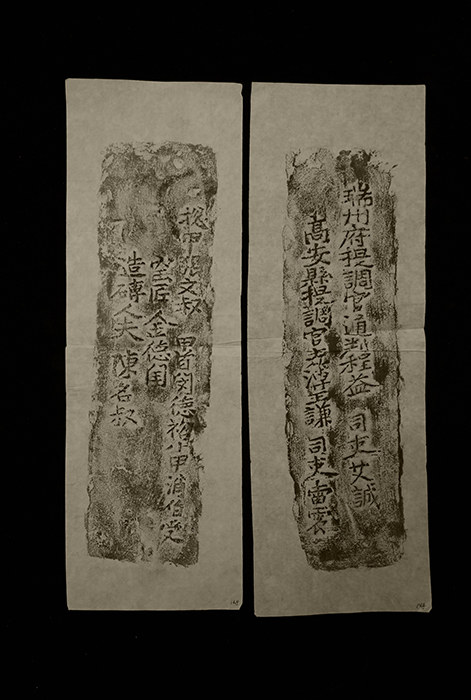 瑞州府提調官通判程益 司吏艾誠
高安縣提調官主簿王謙 司吏雷震
捴甲張文叔 甲首刘德裕小甲消伯受
窑匠全德閏
造磚人夫 陳名叔